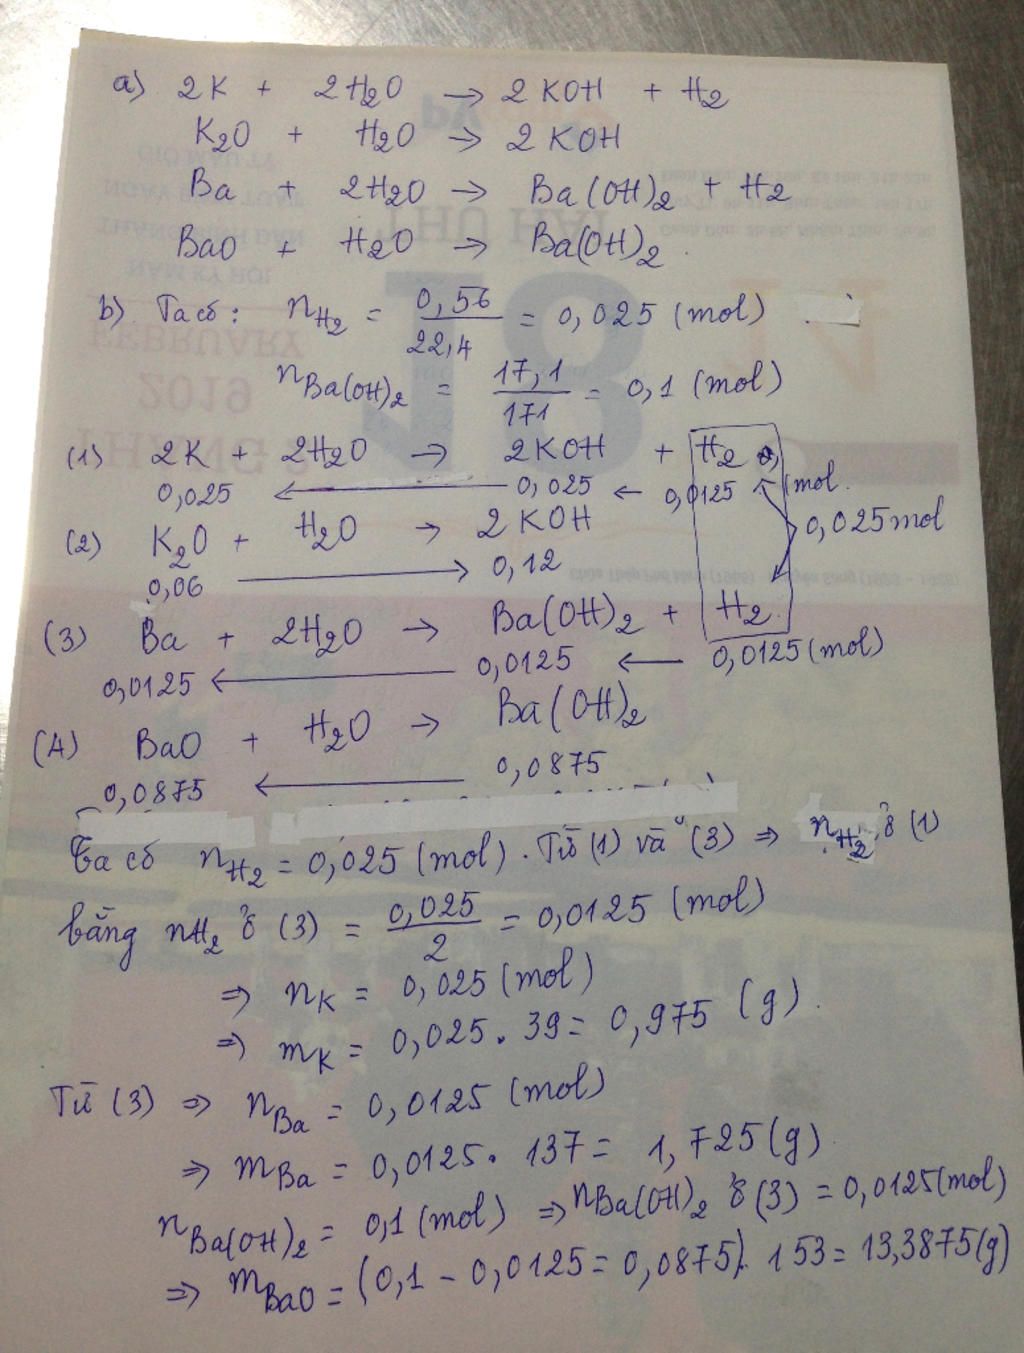 a) 2K + 2H₂O → 2KOH + H₂
K₂O + H₂O → 2KOH
Ba + 2H₂O → Ba(OH)₂ + H₂
BaO + H₂O → Ba(OH)₂.
b) Ta có: nH₂ = 0,56/22,4 = 0,025 (mol)
nBa(OH)₂ = 17,1/171 = 0,1 (mol)
(1) 2K + 2H₂O → 2KOH + H₂
0,025 ← 0,025 ← 0,0125 mol.
0,025mol
(2) K₂O + H₂O → 2KOH
0,06 → 0,12
(3) Ba + 2H₂O → Ba(OH)₂ + H₂
0,0125 ← 0,0125 ← 0,0125 (mol)
(4) BaO + H₂O → Ba(OH)₂
0,0875 ← 0,0875
Ta có nH₂ = 0,025 (mol). Từ (1) và (3) ⇒ nH₂ ở (1)
bằng nH₂ ở (3) = 0,025/2 = 0,0125 (mol)
⇒ nK = 0,025 (mol)
⇒ mK = 0,025 . 39 = 0,975 (g).
Từ (3) ⇒ nBa = 0,0125 (mol)
⇒ mBa = 0,0125 . 137 = 1,725 (g)
nBa(OH)₂ = 0,1 (mol) ⇒ nBa(OH)₂ ở (3) = 0,0125 (mol)
⇒ mBaO = (0,1 - 0,0125 = 0,0875). 153 = 13,3875 (g)
THỨ HAI
18
FEBRUARY
2019